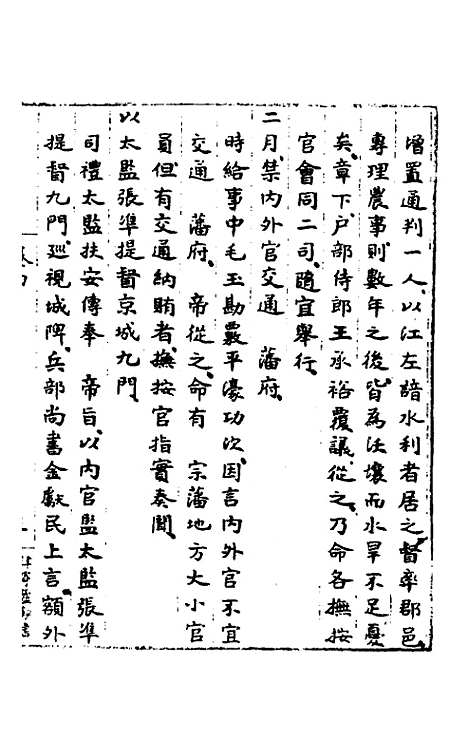 增置通判一人以江左諳水利者居之督率郡邑
專理農事則數年之後皆為沃壤而水旱不足憂
矣章下戶部侍郎王承裕覆議從之乃命各撫按
官會同二司隨宜舉行
二月禁內外官交通　藩府
時給事中毛玉勘覈平濠功次因言內外官不宜
交通　藩府　帝從之命有　宗藩地方大小官
員但有交通納賄者撫按官指實奏聞
以太監張準提督京城九門
司禮太監扶安傳奉　帝旨以內官監太監張準
提督九門巡視城陴兵部尚書金獻民上言額外